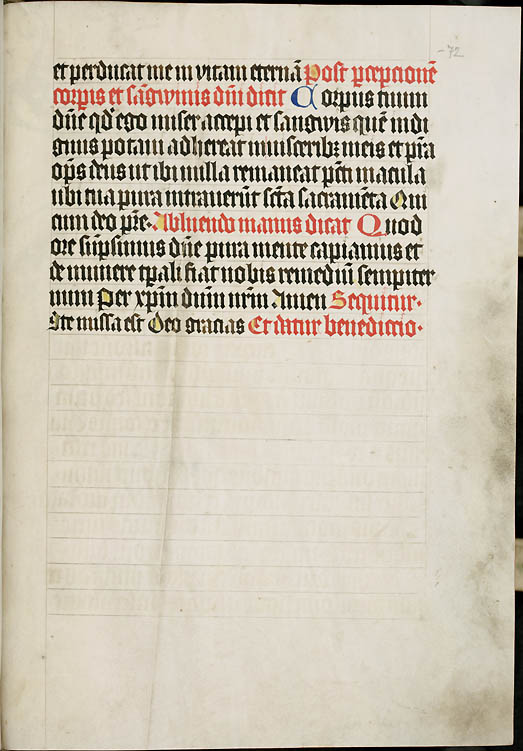 -72
et perducat me in vitam eternā Post pcepcionē
corpis et sāgwinis dnī dicat Corpus tuum
dn̄e qd' ego miser accepi et sangwis quē indi
gnus potaui adhereat uisceribz meis et p̄ra
op̄s deus ut ibi nulla remaneat pcti macula
ubi tua pura intrauerūt sc̄ta sacramēta Qui
cum deo pr̄e. Abluendo manus dicat Quod
ore sūpsimus dn̄e pura mente capiamus et
de munere tpali fiat nobis remediū sempiter
num Per xp̄m dnm nr̄m Amen Sequitur.
Ite missa est Deo gracias Et datur benedictio.